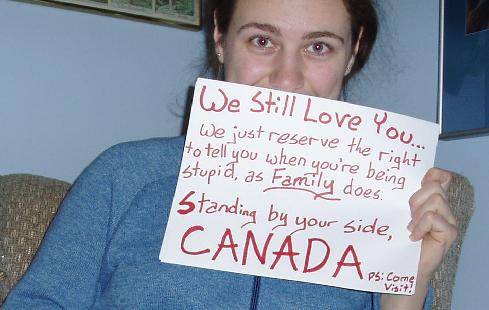 We Still Love You...
We just reserve the right
to tell you when you're being
stupid, as Family does.
Standing by your side,
CANADA
ps: Come
Visit!